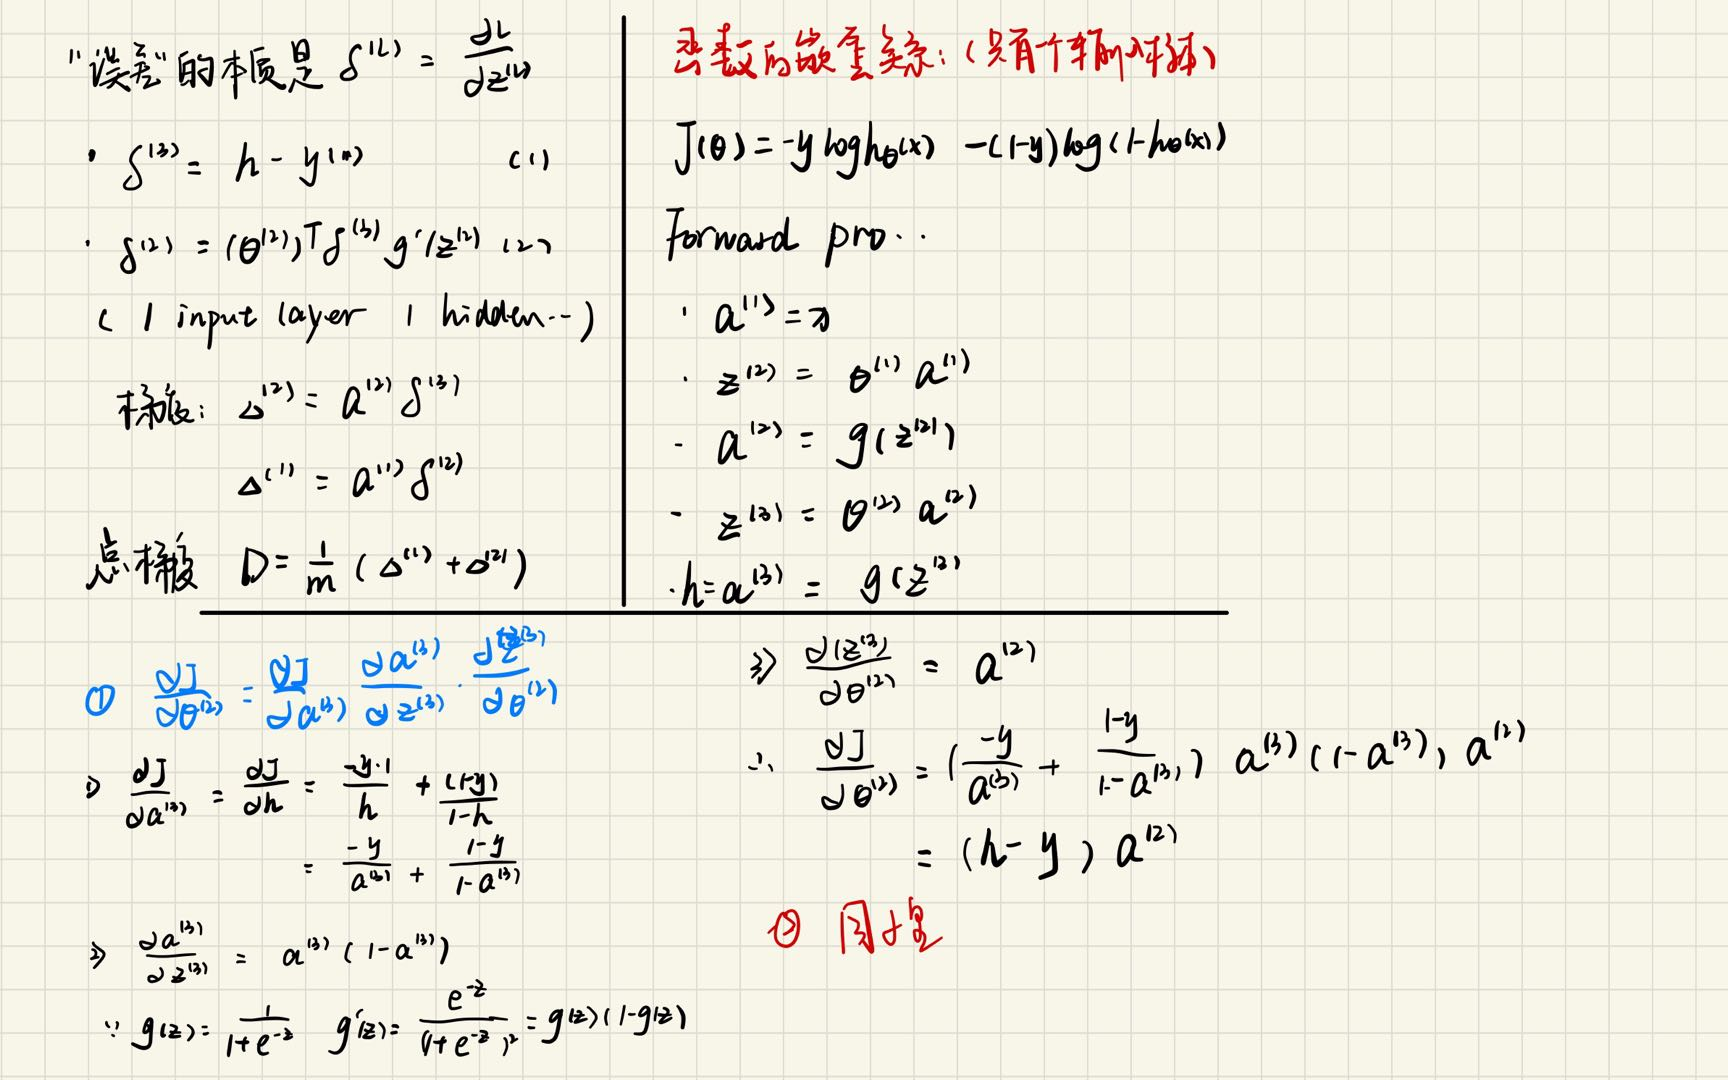 "误差"的本质是 δ^(L) = ∂L/∂z^(L)
· δ^(3) = h - y^(n) (1)
· δ^(2) = (θ^(2))^T δ^(3) g'(z^(2) (2)
( 1 input layer 1 hidden...)
梯度: Δ^(2) = a^(2) δ^(3)
Δ^(1) = a^(1) δ^(2)
总梯度 D = 1/m (Δ^(1) + Δ^(2))
函数的嵌套关系: (只有一个
J(θ) = -y log hθ(x) -(1-y) log(1-hθ(x))
Forward pro..
· a^(1) = x
· z^(2) = θ^(1) a^(1)
- a^(2) = g(z^(2))
- z^(3) = θ^(2) a^(2)
· h = a^(3) = g(z^(3)
① ∂J/∂θ^(2) = ∂J/∂a^(3) ∂a^(3)/∂z^(3) · ∂z^(3)/∂θ^(2)
1) ∂J/∂a^(3) = ∂J/∂h = -y·1/h + (1-y)/1-h
= -y/a^(3) + 1-y/1-a^(3)
2) ∂a^(3)/∂z^(3) = a^(3) (1-a^(3))
∵ g(z) = 1/1+e^-z g'(z) = e^-z/(1+e^-z)^2 = g(z)(1-g(z)
3) ∂(z^(3)/∂θ^(2) = a^(2)
∴ ∂J/∂θ^(2) = (-y/a^(3) + 1-y/1-a^(3)) a^(3) (1-a^(3)) a^(2)
= (h-y) a^(2)
② 同理